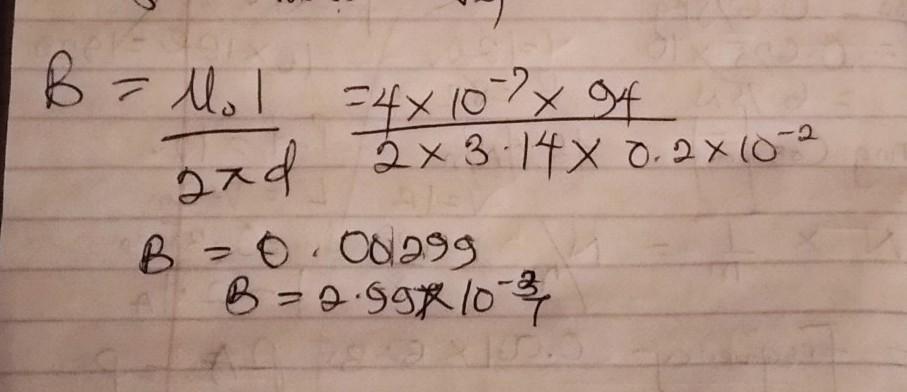 B = μ₀I / 2πd = 4 × 10⁻⁷ × 94 / 2 × 3.14 × 0.2 × 10⁻²
B = 0.00299
B = 2.99 × 10⁻³ T